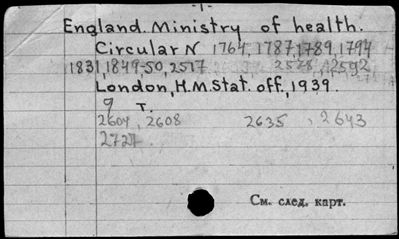 -1-
England. Ministry of health.
Circular N 1764, 1787, 1789, 1794
1831, 1849-50, 2517 2578, 2592
London, H.M. Stat. off., 1939.
9 т.
2604, 2608 2635, 2643
2727
См. след. карт.